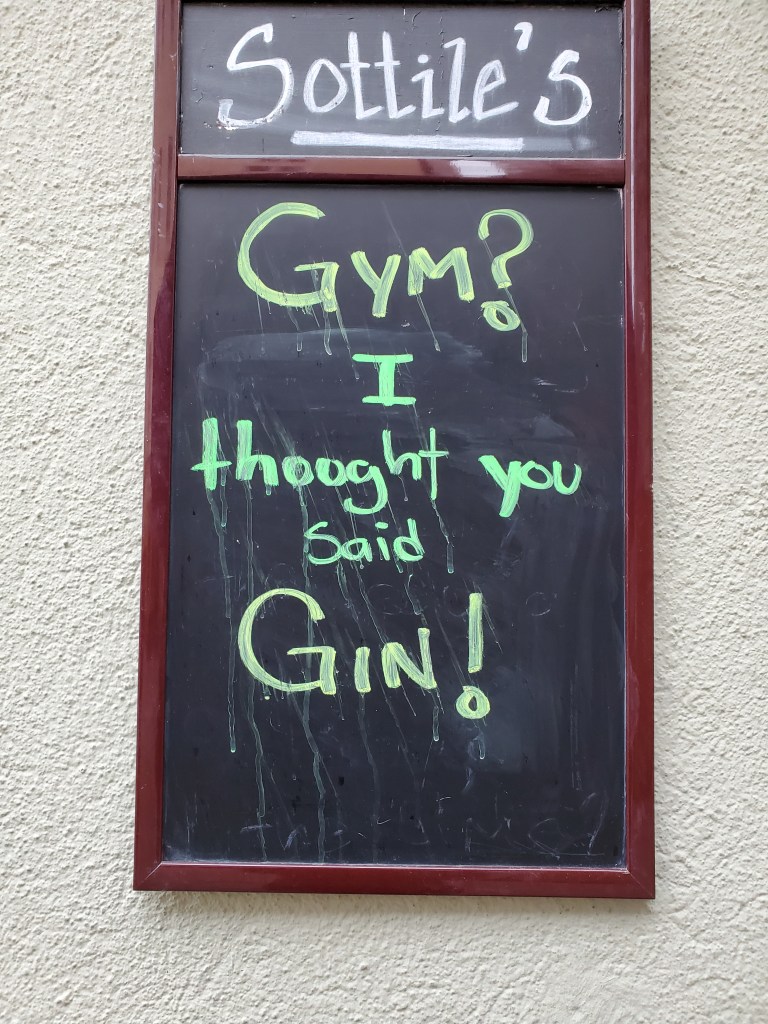 Sottile's
GYM?
I
thought you
said
GIN!